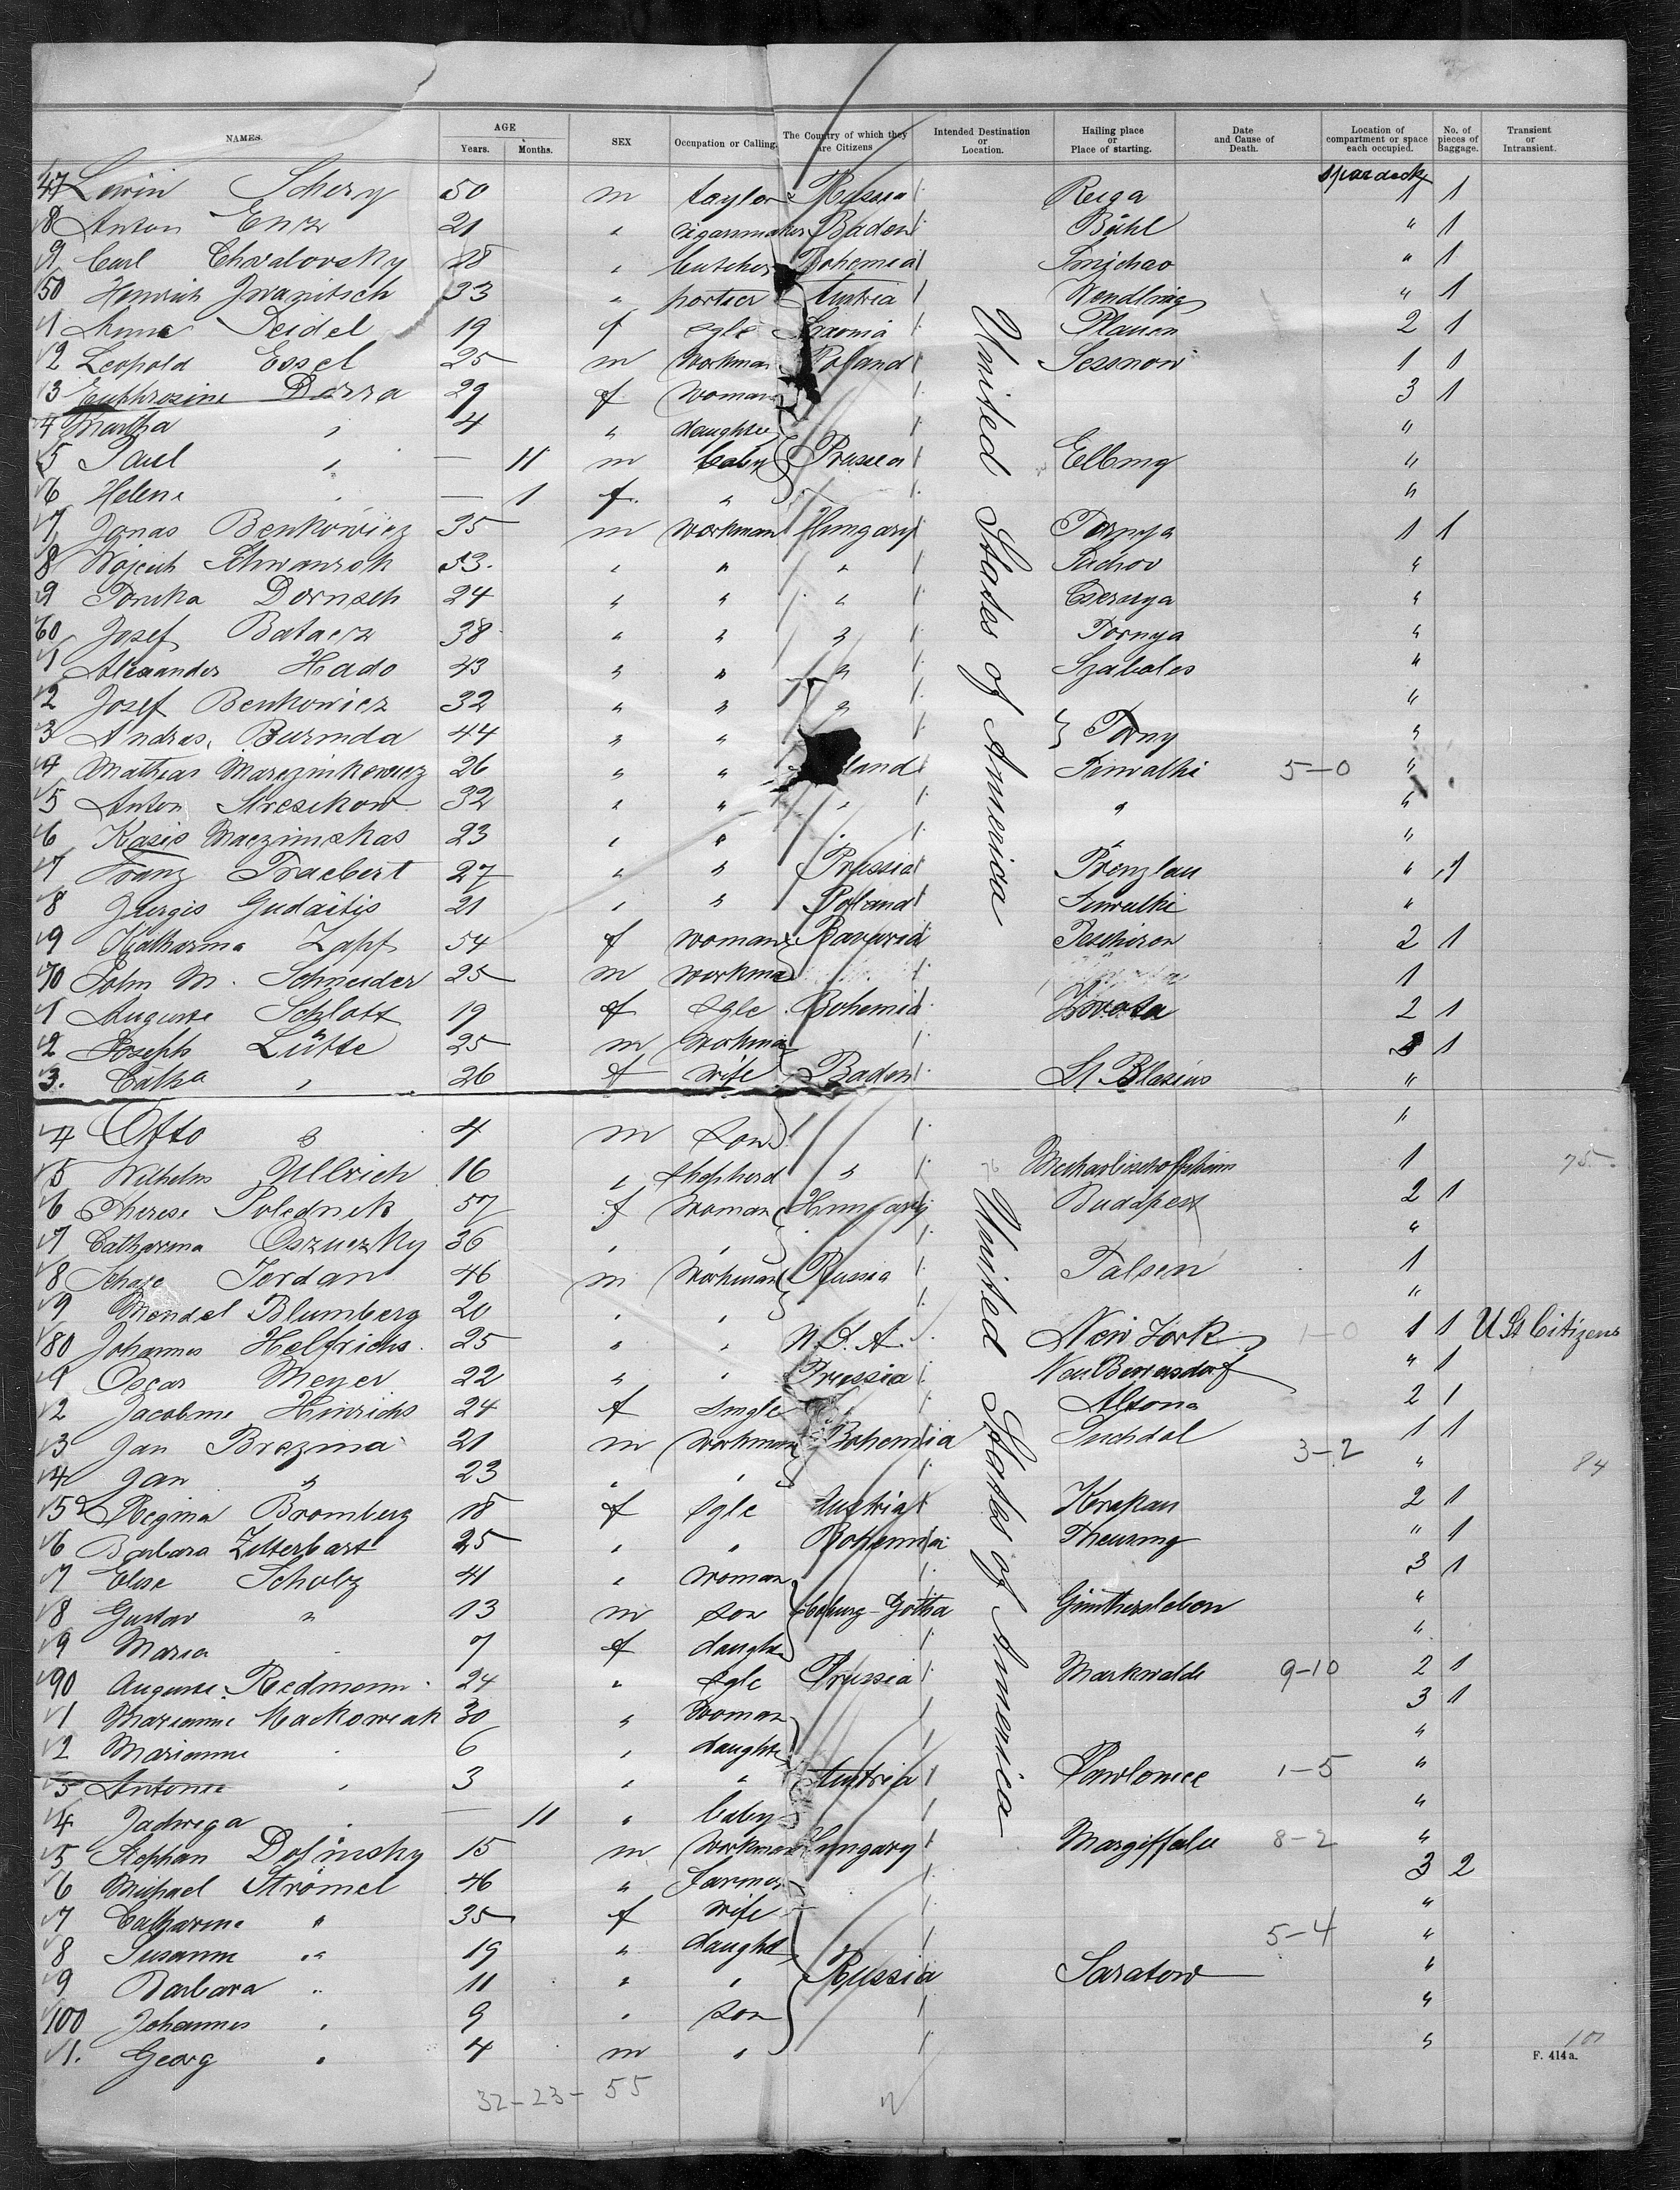 NAMES.
AGE
Years. Months.
SEX
Occupation or Calling.
The Country of which they are Citizens
Intended Destination or Location.
Hailing place or Place of starting.
Date and Cause of Death.
Location of compartment or space each occupied.
No. of pieces of Baggage.
Transient or Intransient.
spardeck
47 Lewin Schery 50 m taylor Russia Riga 1 1
8 Anton Enz 21 " Baden Bühl " 1
9 Carl Chvalovsky 28 " butcher Bohemia Smichao " 1
50 Heinrich Iwanitsch 33 " portier Austria Wendling " 1
1 Anna Seidel 19 f sgle Saxonia Plauen 2 1
2 Leopold Essel 25 m workman Poland Sessnow 1 1
3 Euphrosine Derra 29 f woman 3 1
4 Martha " 4 " daughter "
5 Paul " — 11 m baby Prussia Elbing "
6 Helene " — 1 f. " "
7 Jonas Benkowicz 35 m workman Hungary Tornya 1 1
8 53. " " " "
9 Dornseh 24 " " " "
60 Josef Batacz 38 " " " Tornya "
1 Alexander Hado 43 " " " Szabolcs "
2 Josef Benkowicz 32 " " " "
3 Andras. Burinda 44 " " Torny "
4 Mathias 26 " " land Suwalki 5-0 "
5 Anton 32 " " " " "
6 Kasis 23 " " "
7 Franz Traebert 27 " " Prussia Prenzlau " 1
8 Jurgis Gudaitis 21 " " Poland Suwalki "
9 Katharina Zapf 54 f woman Bavaria 2 1
70 John M. Schneider 25 m workman 1
1 Auguste Schlott 19 f sgle Bohemia 2 1
2 Joseph Lütte 25 m workman 3 1
3. Catha " 26 f wife Baden St Blasius "
4 Otto " 4 m son "
5 Wilhelm Ullrich 16 " shepherd " 1 75
6 Therese Polednik 57 f woman Hungary Budapest 2 1
7 Catharina Oszuczky 36 " " "
8 Jordan 46 m workman Russia Talsen 1
9 Mendel Blumberg 20 " " "
80 Johannes Helfrichs. 25 " " U.S.A. New York 1-0 1 1 U St Citizens
1 Oscar Meyer 22 " " Prussia " 1
2 Jacobine Hinrichs 24 f single " Altona 2 1
3 Jan Brezina 21 m workman Bohemia Suchdol 3-2 1 1
4 Jan " 23 " " " 84
5 Regina Bromberg 18 f sgle Austria Krakau 2 1
6 Barbara Zitterbart 25 " " Bohemia Theusing " 1
7 Elise Scholz 41 " woman 3 1
8 Gustav " 13 m son Coburg-Gotha Günthersleben "
9 Maria 7 f daughter "
90 Auguste Redmann 24 " sgle Prussia Markwalde 9-10 2 1
1 Marianne Mackowiak 30 " woman 3 1
2 Marianne " 6 " daughter "
3 Antonie " 3 " " Austria Pawlowice 1-5 "
4 Jadwiga " — 11 " baby "
5 Stephan Dolinsky 15 m workman Hungary Margiffalu 8-2 "
6 Michael Strömel 46 " farmer 3 2
7 Catharine " 35 f wife "
8 Susanna " 19 " daught 5-4 "
9 Barbara " 11 " " Russia Saratow "
100 Johannes " 9 " son "
1. Georg " 4 m " " 101
United States of America
United States of America
F. 414 a.
32-23-55